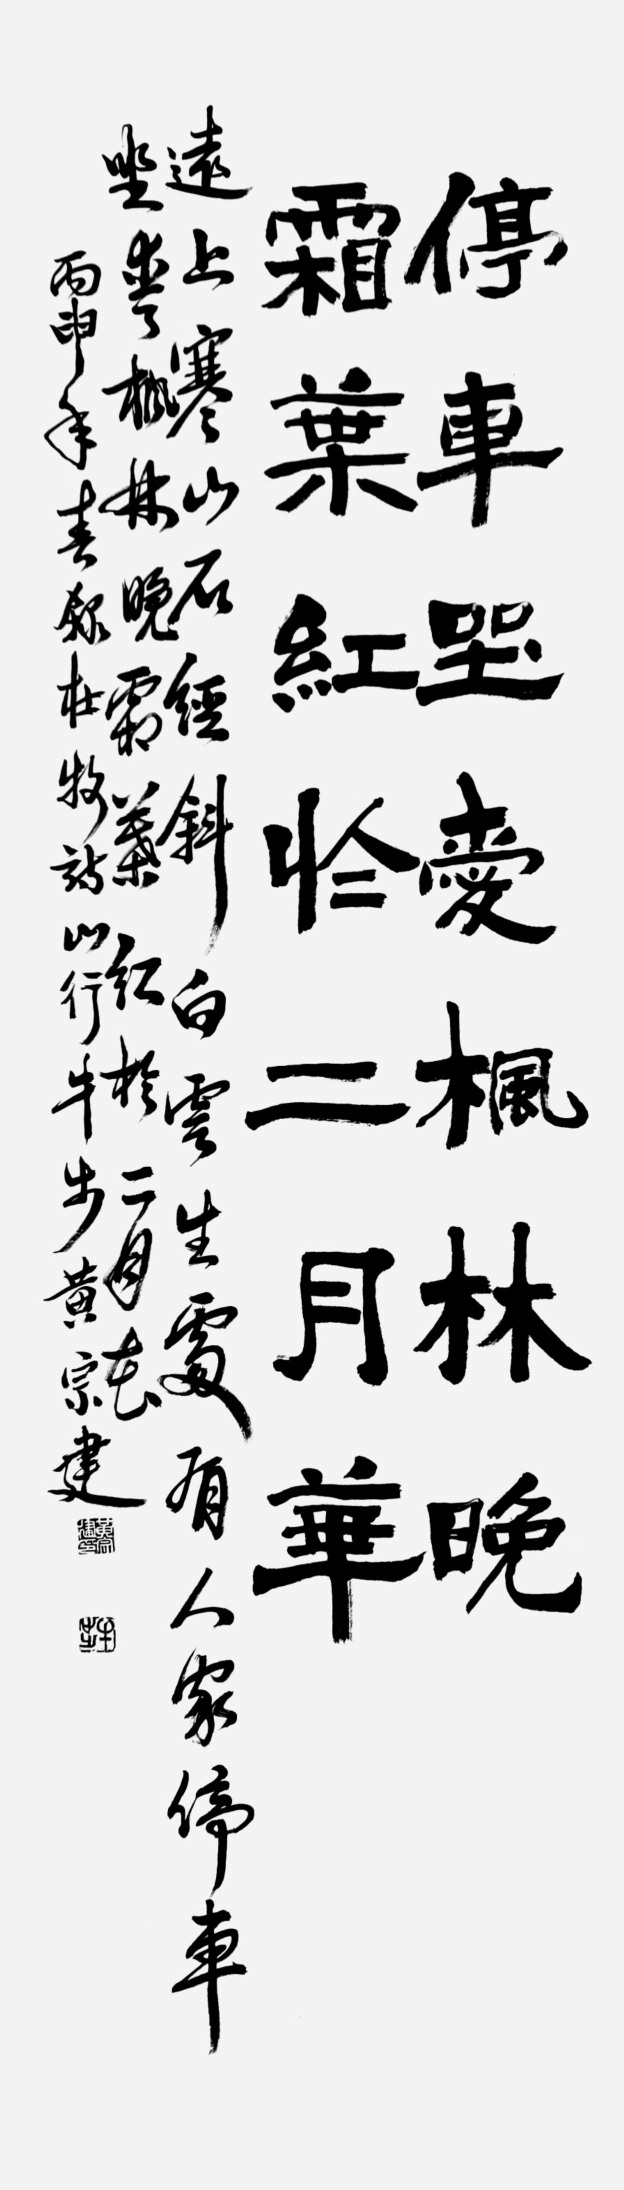 停車坐愛楓林晚
霜葉紅於二月華
遠上寒山石經斜白雲生處有人家停車
坐愛楓林晚霜葉紅於二月花
丙申年春錄杜牧詩山行牛步黃宗建